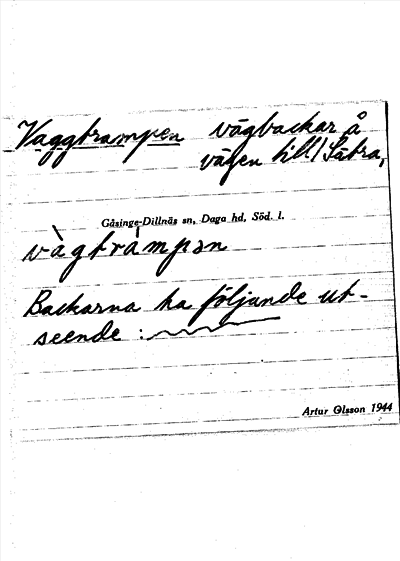 Vaggtrampen vägbackar å
vägen till Sätra,
Gåsinge-Dillnäs sn, Daga hd, Söd. l.
vàgtrámpən
Backarna ha följande ut-
seende :
Artur Olsson 1944